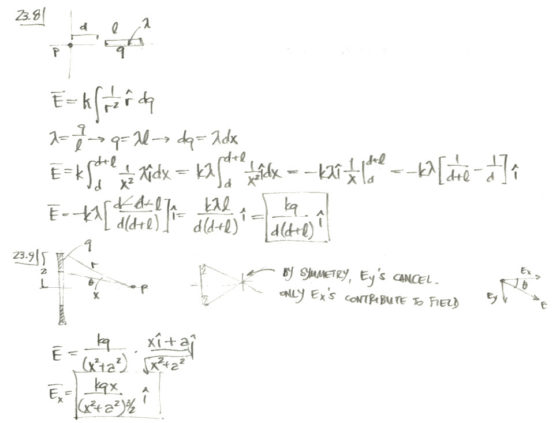 23.8|
d l λ
P q
E⃗ = k ∫ 1/r² r̂ dq
λ = q/l → q = λl → dq = λdx
E⃗ = k ∫_d^{d+l} 1/x² λî dx = kλ ∫_d^{d+l} 1/x² î dx = -kλî 1/x |_d^{d+l} = -kλ [1/(d+l) - 1/d] î
E⃗ = -kλ [(d-d+l)/(d(d+l))] î = kλl/(d(d+l)) î = kq/(d(d+l)) î
23.9|
q
r
a θ x P
BY SYMMETRY, Ey'S CANCEL.
ONLY Ex'S CONTRIBUTE TO FIELD
Ex
Ey θ E
E⃗ = kq/(x²+a²) · (xî + aĵ)/√(x²+a²)
E⃗x = kqx/(x²+a²)^{3/2} î